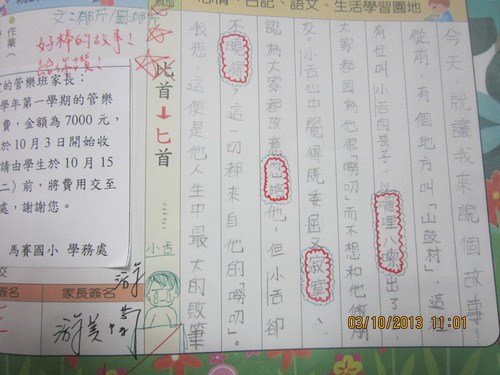 心情、日記、語文、生活學習園地
今天就讓我來說個故事
從前，有個地方叫「山鼓村」，這
有位叫小舌的孩子，以囉哩八嗦出了
大家都因為他很「嘮叨」而不想和他做朋
友，小舌心中覺得既委屈又寂寞，
認為大家都故意忽略他，但小舌卻
不曉得，這一切都來自他的「嘮叨」。
我想，這便是他人生中最大的敗筆
比首→匕首
小舌
好棒的故事！
給你讚！
的管樂班家長：
學年第一學期的管樂
費，金額為 7000 元，
於 10 月 3 日開始收
請由學生於 10 月 15
二）前，將費用交至
處，謝謝您。
馬賽國小 學務處
簽名
家長簽名
03/10/2013 11:01